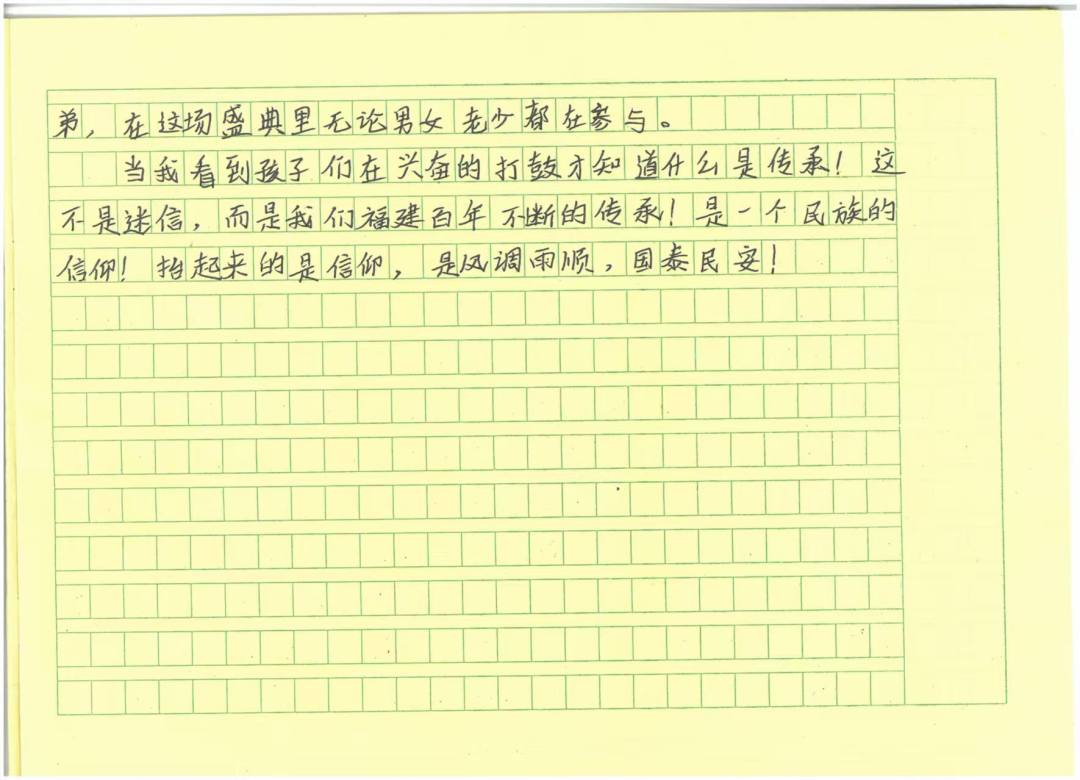 弟，在这场盛典里无论男女老少都在参与。
当我看到孩子们在兴奋的打鼓才知道什么是传承！这
不是迷信，而是我们福建百年不断的传承！是一个民族的
信仰！抬起来的是信仰，是风调雨顺，国泰民安！